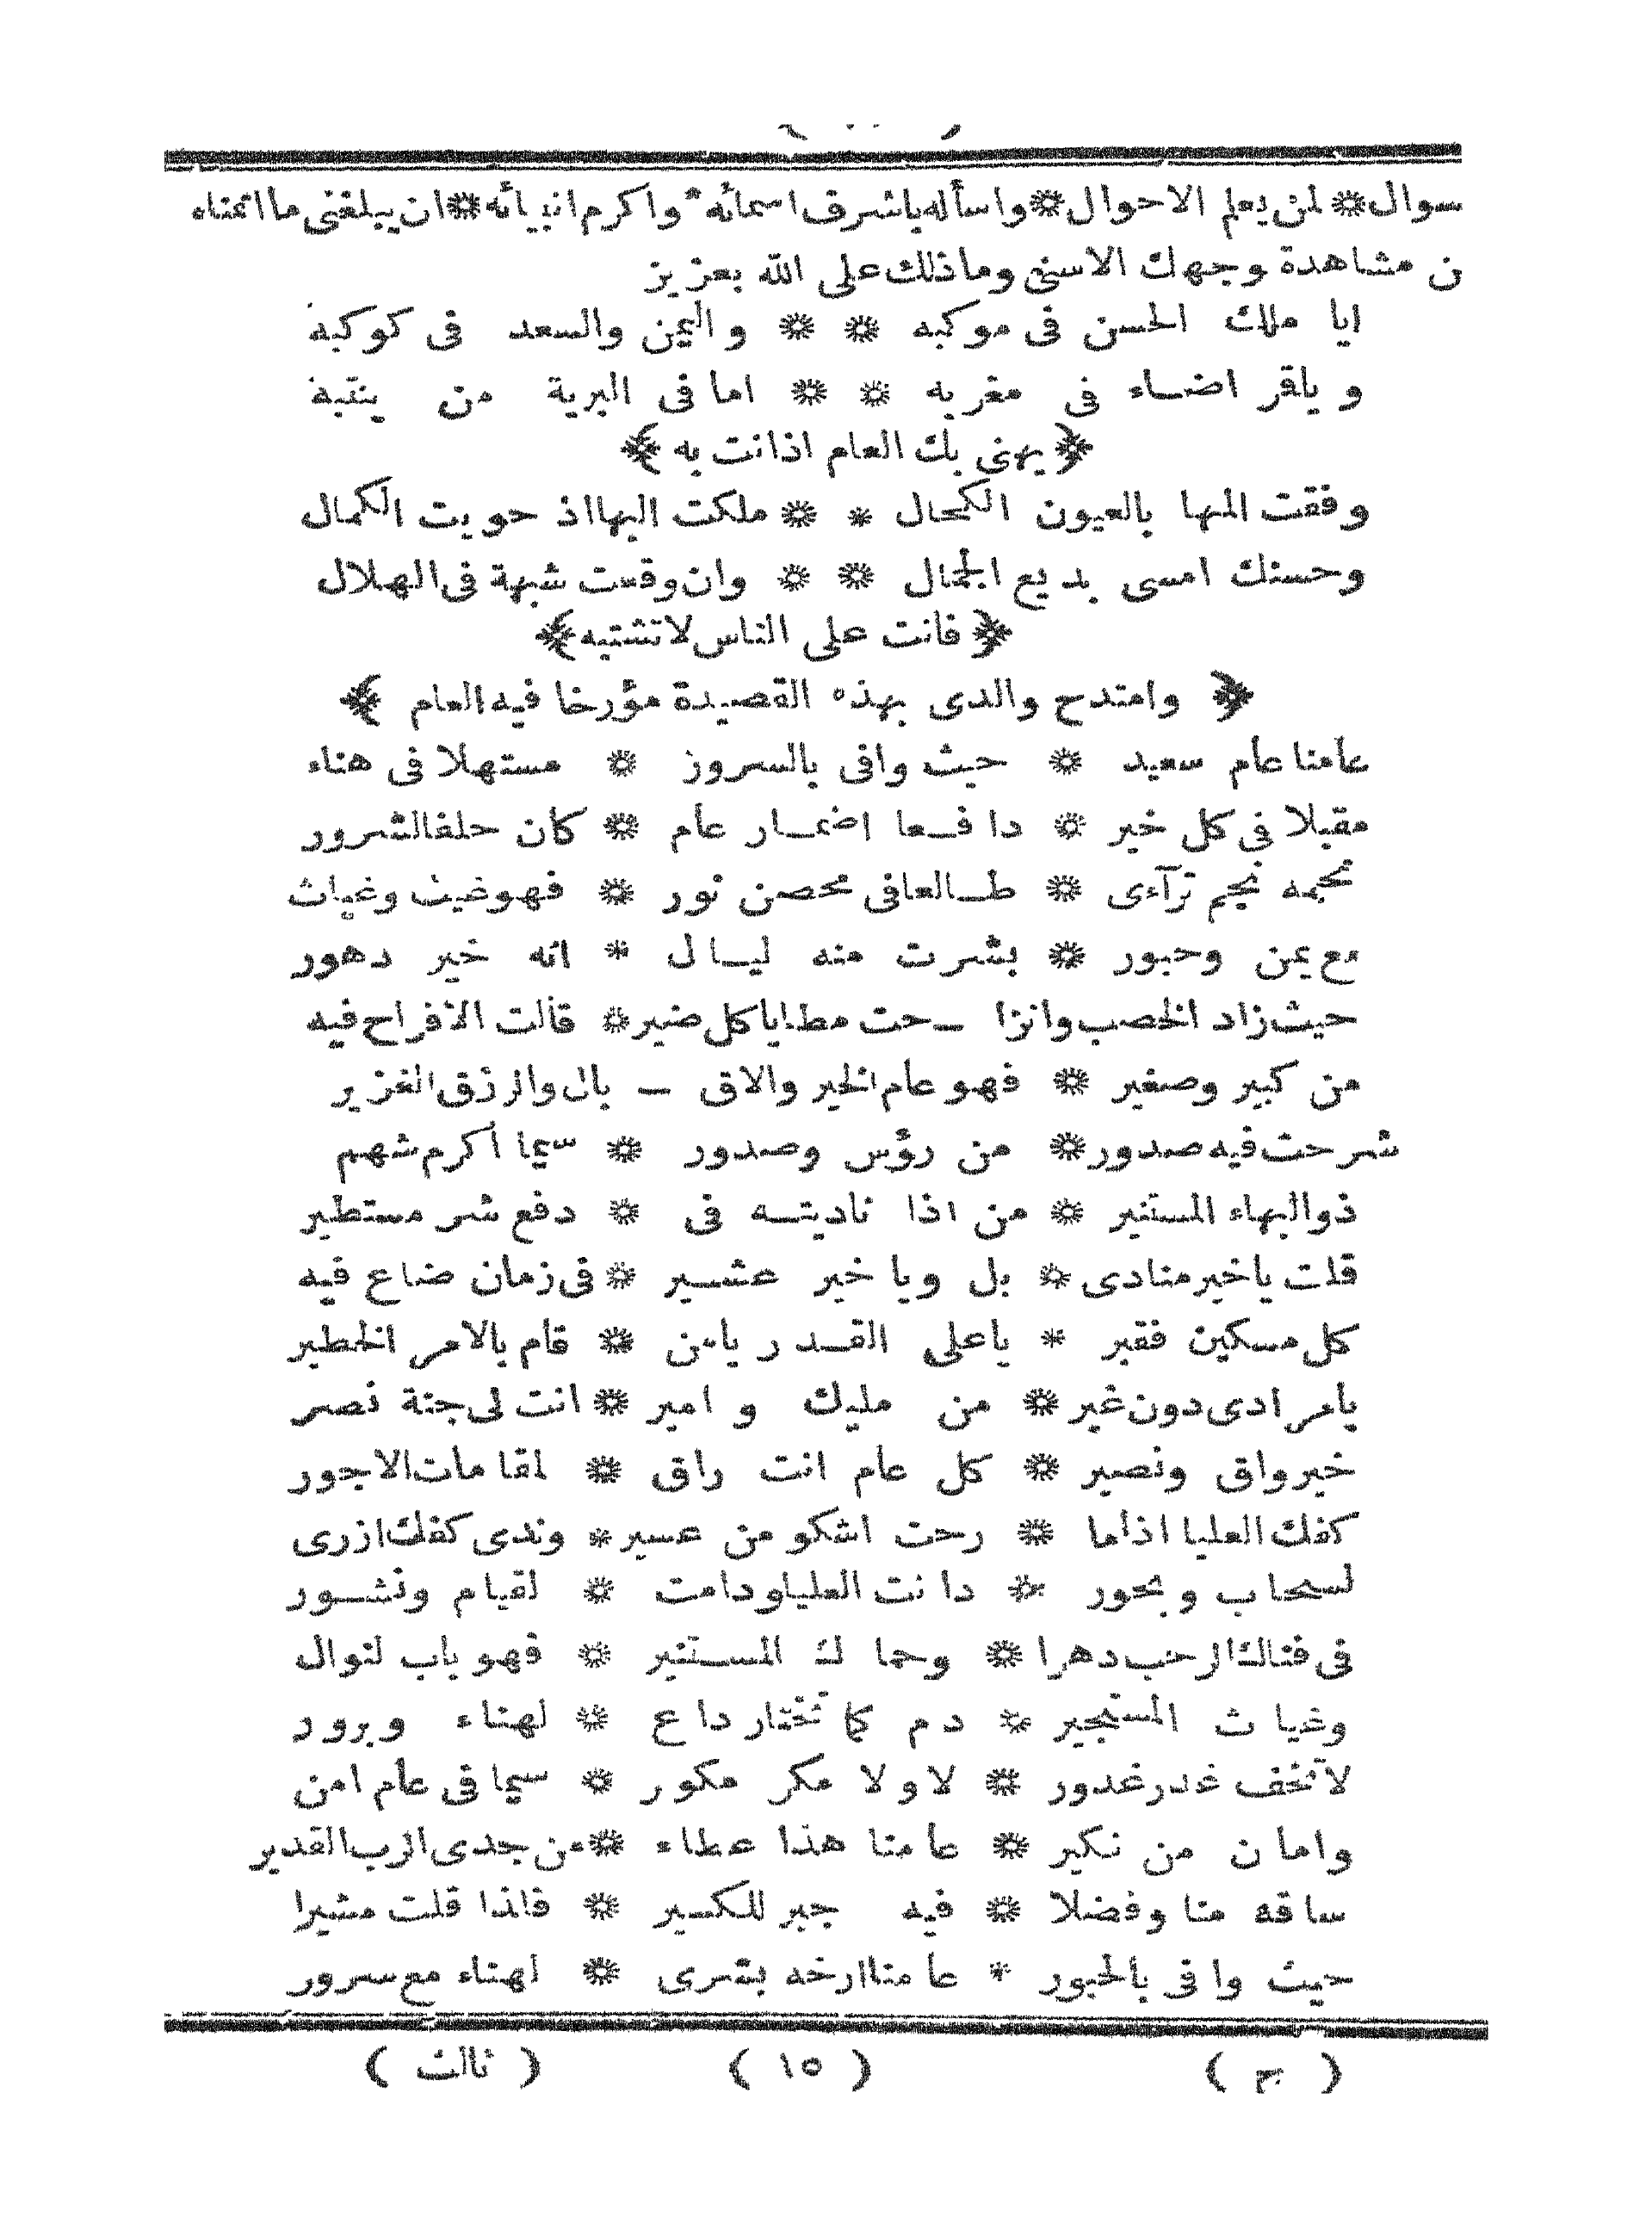 سوال * لمن يعلم الاحوال * واسأله باشرف اسمائه * واكرم انبيائه * ان يبلغنى ما اتمناه
ن مشاهدة وجهك الاسنى وما ذلك على الله بعزيز
ايا ملك الحسن فى موكبه * * واليمن والسعد فى كوكبه
وياقمر اضاء فى مغربه * * اما فى البرية من ينتبه
﴿ يهنى بك العام اذا انت به ﴾
وفقت المها بالعيون الكحال * * ملكت البها اذ حويت الكمال
وحسنك امسى بديع الجمال * * وان وقعت شبهة فى الهلال
﴿ فانت على الناس لا تشتبه ﴾
﴿ وامتدح والدى بهذه القصيدة مؤرخا فيه العام ﴾
عامنا عام سعيد * حيث وافى بالسرور * مستهلا فى هناء
مقبلا فى كل خير * دافعا اضمار عام * كان حلفا لشرور
نجمه نجم ترآءى * طالعا فى محصن نور * فهو غيث وغياث
مع يمن وحبور * بشرت منه ليال * انه خير دهور
حيث زاد الخصب وانزا – حت مطايا كل ضير * قالت الافراح فيه
من كبير وصغير * فهو عام الخير والاق – بال والرزق الغزير
شرحت فيه صدور * من رؤس وصدور * سيما اكرم شهم
ذو البهاء المستنير * من اذا ناديته فى * دفع شر مستطير
قلت ياخير منادى * بل ويا خير عشير * فى زمان ضاع فيه
كل مسكين فقير * ياعلى القدر يامن * قام بالامر الخطير
يامرادى دون غير * من مليك وامير * انت لى جنة نصر
خير واق ونصير * كل عام انت راق * لمقامات الاجور
كفك العليا اذا ما * رحت اشكو من عسير * وندى كفك ازرى
لسحاب وبحور * دانت العليا ودامت * لقيام ونشور
فى فنالك الرحب دهرا * وحماك المستنير * فهو باب لنوال
وغياث المستجير * دم كما تختار داع * لهناء وبرور
لا تخف غدر غدور * لا ولا مكر مكور * سيما فى عام امن
وامان من نكير * عامنا هذا عطاء * من جدى الرب القدير
ساقه منا وفضلا * فيه جبر للكسير * فاذا قلت مشيرا
حيث وافى بالحبور * عامنا ارخه بشرى * لهناء مع سرور
( ج ) ( ١٥ ) ( ثالث )